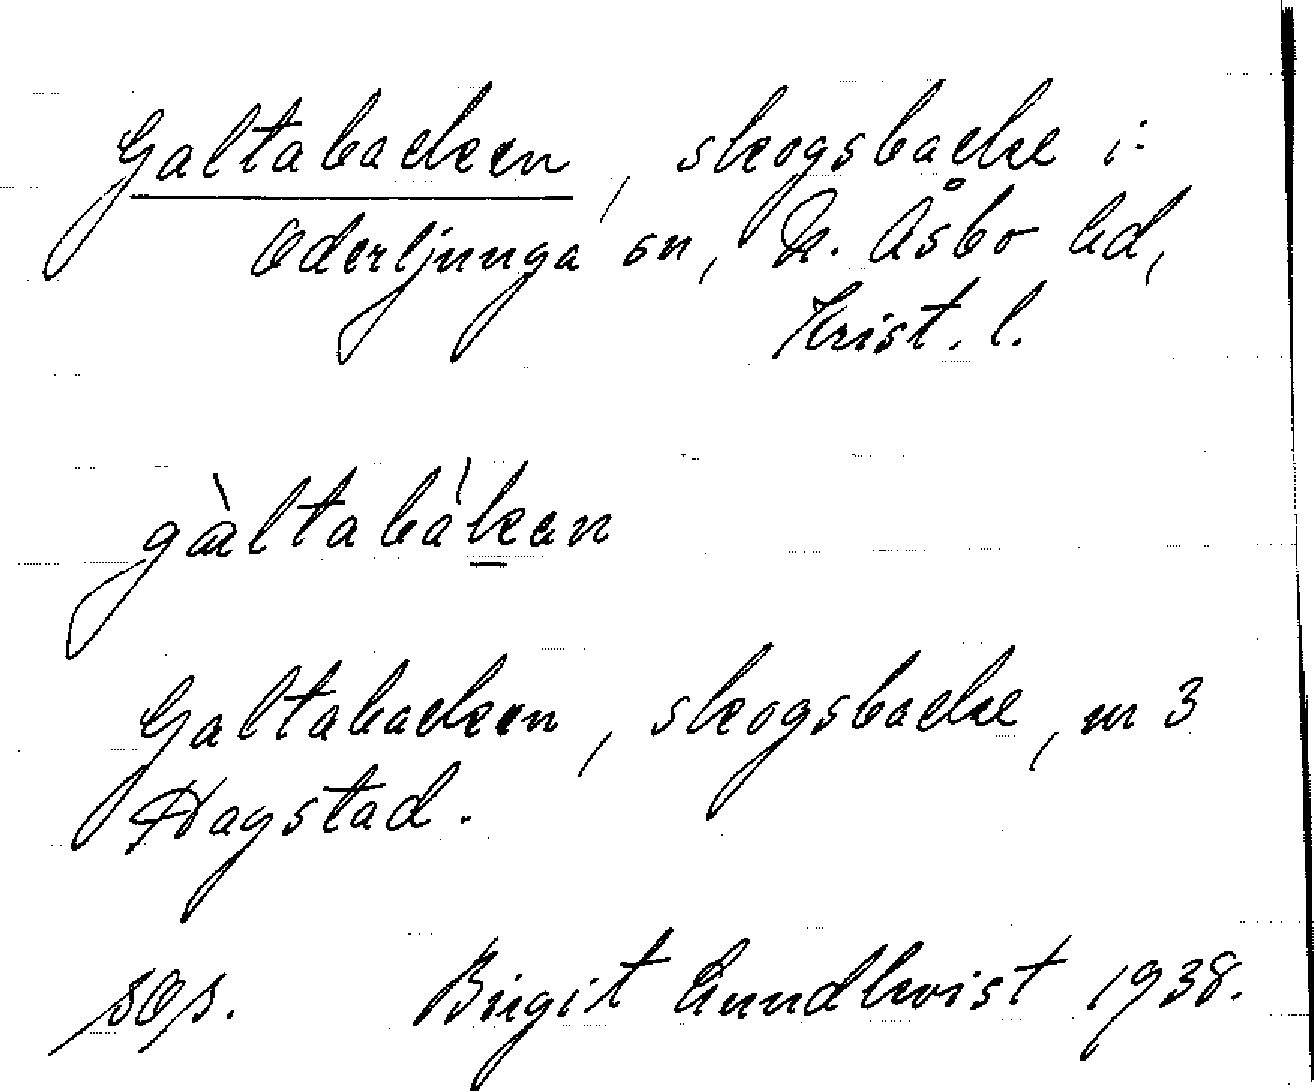 Galtabacken, skogsbacke i:
Oderljunga sn, N. Åsbo hd,
Krist. l.
gàltabàken
Galtabacken, skogsbacke, m 3
Hagstad.
Birgit Lundkvist 1938.